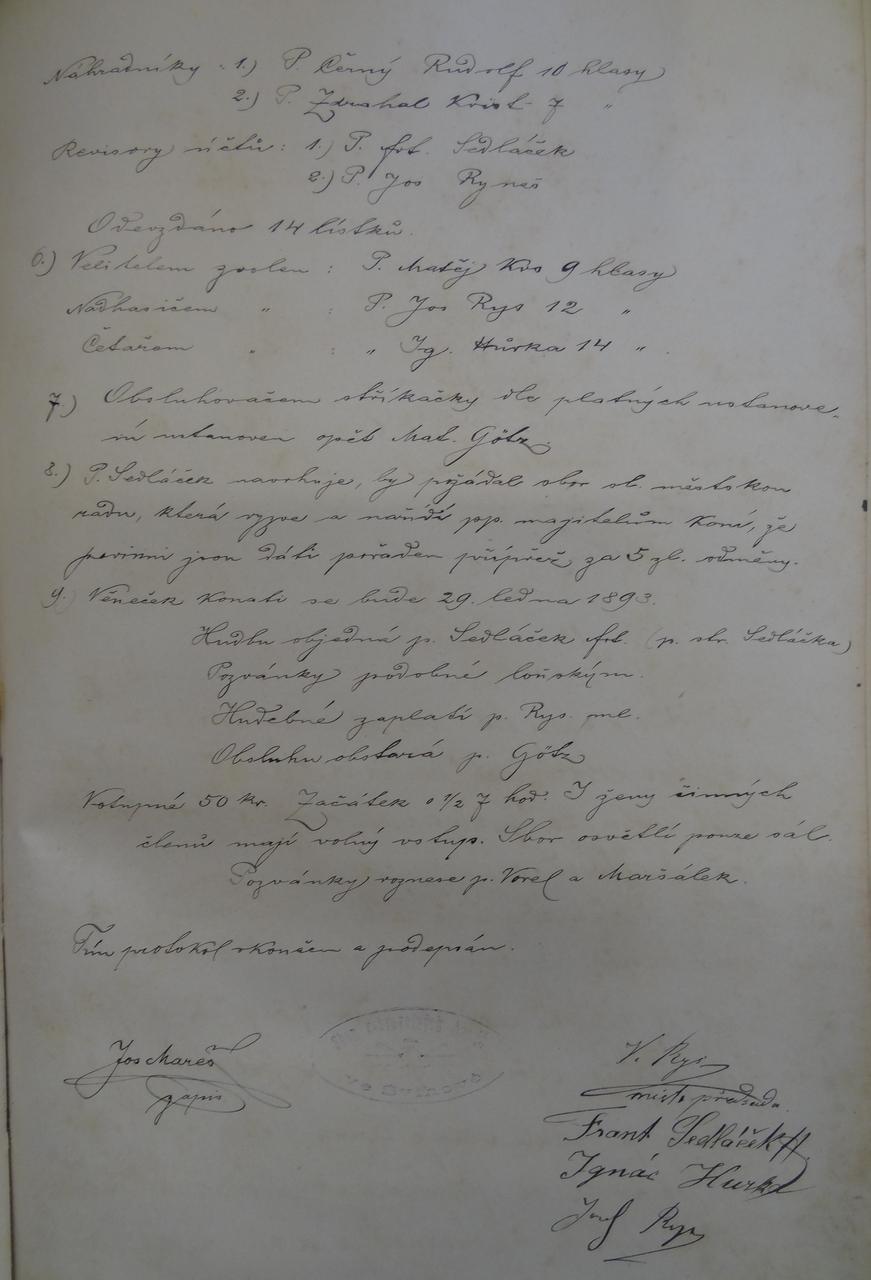 Náhradníky : 1.) P. Černý Rudolf 10 hlasy
2.) P. Zdrahal Krist. 7 "
Revisory účtů : 1.) P. frt. Sedláček
2.) P. Jos Ryneš
Odevzdáno 14 lístků.
6.) Velitelem zvolen : P. Matěj Kos 9 hlasy
Nadhasičem " : P. Jos Rys 12 "
Četařem " : " Ig. Hůrka 14 " .
7.) Obsluhovačem stříkačky dle platných ustanove-
ní ustanoven opět Mat. Götz.
8.) P. Sedláček navrhuje, by požádal sbor sl. městskou
radu, která vyzve a nařídí pp. majitelům koní, že
povinni jsou dáti pořádem přípřež za 5 zl. odměny.
9.) Věneček konati se bude 29. ledna 1893.
Hudbu objedná p. Sedláček frt. (p. str. Sedláčka)
Pozvánky podobné loňským.
Hudebné zaplatí p. Rys. ml.
Obsluhu obstará p. Götz
Vstupné 50 kr. Začátek o 1/2 7 hod. I ženy činných
členů mají volný vstup. Sbor osvětlí pouze sál.
Pozvánky roznese p. Vorel a Maršálek.
Tím protokol skončen a podepsán.
Jos Mareš
zapis
V. Rys
místopředseda.
Frant Sedláček
Ignác Hurka
Josef Rys